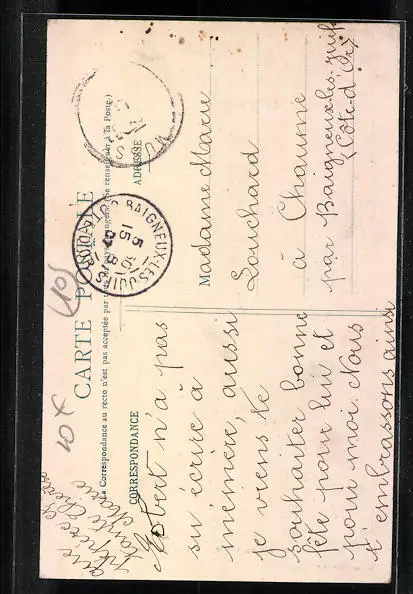 CARTE POSTALE
La Correspondance au recto n'est pas acceptée par tous
(Se renseigner à la Poste)
CORRESPONDANCE
ADRESSE
BAIGNEUX-LES-JUIFS
15
5
CÔTE D'OR
10
10 x
Robert n'a pas
su écrire à
mémère, aussi
je viens te
souhaiter bonne
fête pour lui et
pour moi. Nous
t'embrassons ainsi
que
pépère et
tante Marie
Madame Marie
Louchard
à Chaume
par Baigneux-les-Juifs
(Côte-d'Or)